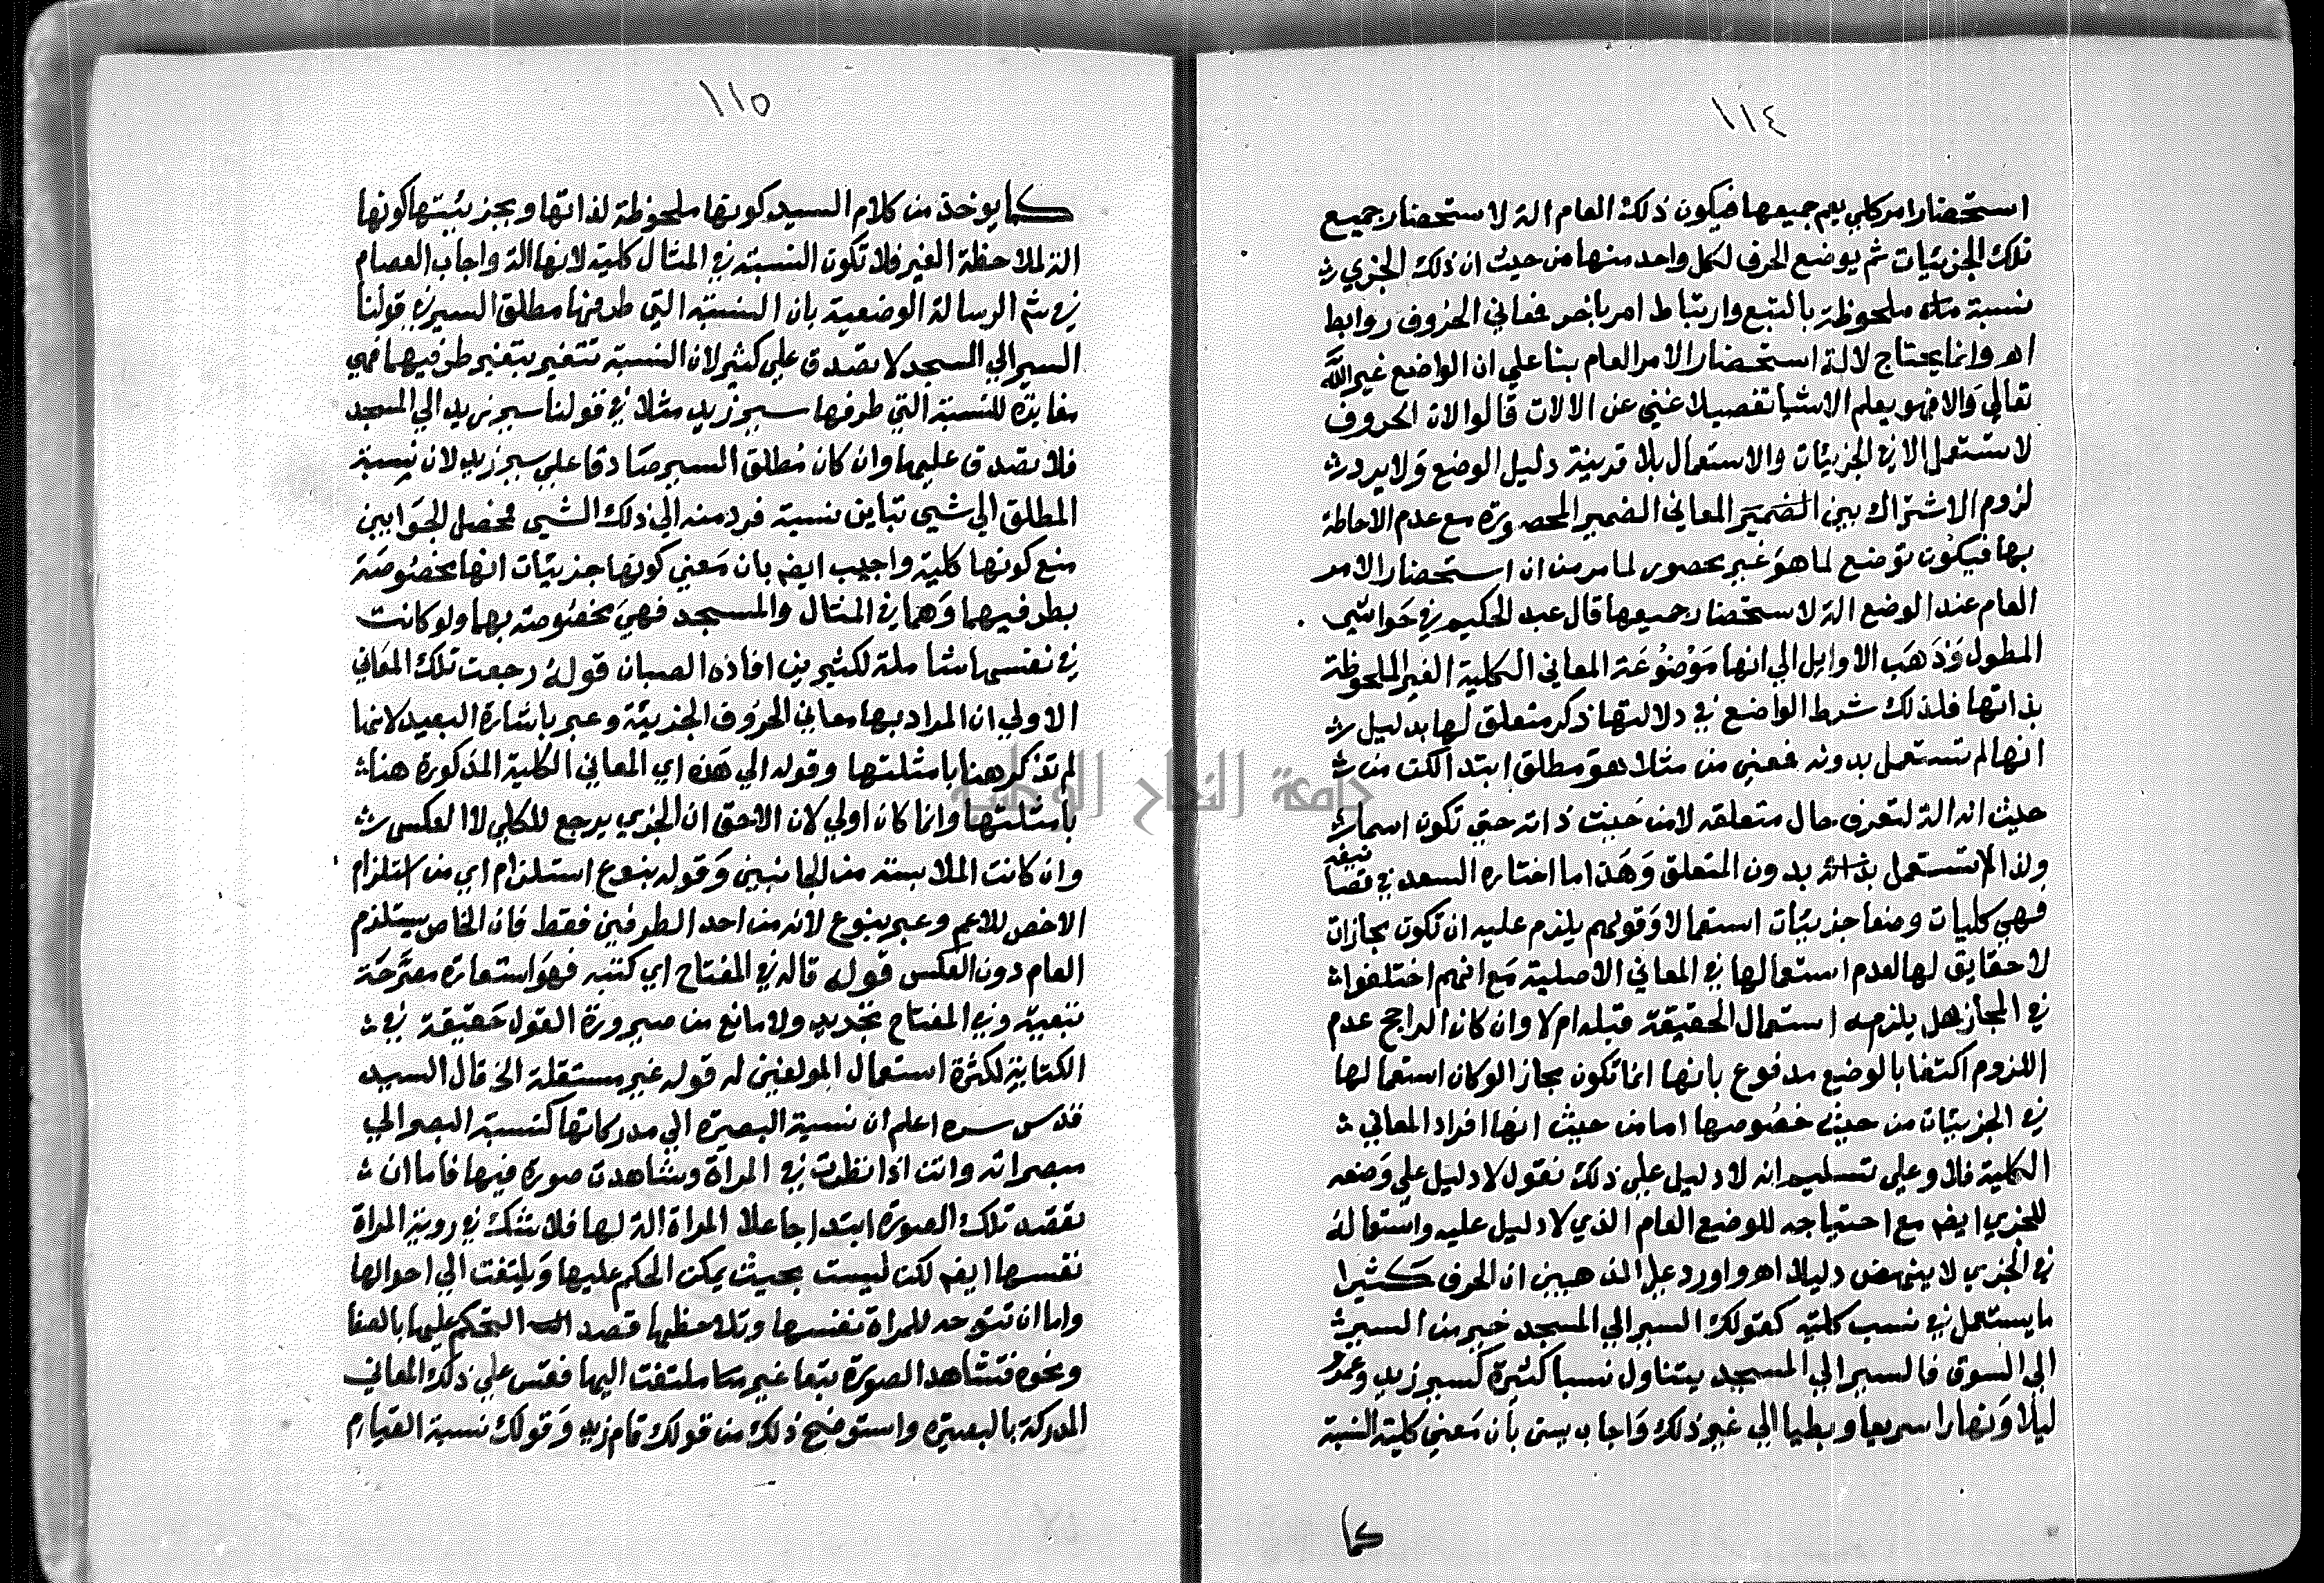 ١١٤
استحضار امر كلي يعم جميعها فيكون ذلك العام الة لاستحضار جميع
تلك الجزئيات ثم يوضع الحرف لكل واحد منها من حيث ان ذلك الجزي
نسبة ملحوظة بالتبع وارتباط امر باخر فمعاني الحروف روابط
اهر وانما يحتاج لالة استحضار الامر العام بنا علي ان الواضع غير الله
تعالي والا فهو يعلم الاشيا تفصيلا غني عن الالات قالوا لان الحروف
لا تستعمل الا في الجزئيات والاستعمال بلا قرينة دليل الوضع ولا يرد
لزوم الاشتراك بين المعاني الغير المحصورة مع عدم الاحاطة
بها فيكون توضع لما هو غير محصور لما مر من ان استحضار الامر
العام عند الوضع الة لاستحضار جميعها قال عبد الحكيم في حواشي
المطول وذهب الاوايل الي انها موضوعة المعاني الكلية الغير الملحوظة
بذاتها فلذلك شرط الواضع في دلالتها ذكر متعلق لها بدليل
انها لم تستعمل بدونه فمعني من مثلا هو مطلق ابتدا لكن من
حيث انه الة لتعرف حال متعلقه لا من حيث ذاته حتي تكون اسما
ولذا لا تستعمل بدون المتعلق وهذا ما اختاره السعد في تصانيفه
فهي كليات وضعا جزئيات استعمالا وقولهم يلزم عليه ان تكون مجازات
لا حقايق لها لعدم استعمالها في المعاني الاصلية مع انهم اختلفوا
في المجاز هل يلزمه استعمال الحقيقة قبله ام لا وان كان الراجح عدم
اللزوم اكتفا بالوضع مدفوع بانها انما تكون مجاز الو كان استعمالها
في الجزئيات من حيث خصوصها اما من حيث انها افراد المعاني
الكلية فلا وعلي تسليم انه لا دليل علي ذلك نقول لا دليل علي وضعه
للجزي ايضم مع احتياجه للوضع العام الذي لا دليل عليه واستعماله
في الجزي لا ينهض دليلا اهر واورد علي المذهبين ان الحرف كثيرا
ما يستعمل في نسب كلية كقولك السير الي المسجد خير من السير
الي السوق فالسير الي المسجد يتناول نسبا كثيرة كسير زيد وعمرو
ليلا ونهارا سريعا وبطيا الي غير ذلك واجاب يس بان معني كلية النسبة
كما
١١٥
كما يوخذ من كلام السيد كونها ملحوظة لذاتها وبجزئيتها كونها
الة لملاحظة الغير فلا تكون النسبة في المثال كلية لانها الة واجاب العصام
في شم الرسالة الوضعية بان النسبة التي طرفها مطلق السير في قولنا
السير الي المسجد لا تصدق علي كثير لان النسبة تتغير بتغير طرفيها فهي
مغايرة للنسبة التي طرفها سير زيد مثلا في قولنا سير زيد الي المسجد
فلا تصدق عليها وان كان مطلق السير صادقا علي سير زيد لان نسبة
المطلق الي شي تباين نسبة فرد منه الي ذلك الشي فمحصل الجوابين
منع كونها كلية واجيب ايضم بان معني كونها جزئيات انها مخصوصة
بطرفيها وهما في المثال والمسجد فهي مخصوصة بهما ولو كانت
في نفسها شاملة لكثيرين افاده الصبان قوله رجعت تلك المعاني
الاولي ان المراد بها معاني الحروف الجزئية وعبر باشارة البعيد لانها
لم تذكر هنا بامثلتها وقوله الي هذه اي المعاني الكلية المذكورة هنا
بامثلتها وانما كان اولي لان الاحق ان الجزي يرجع للكلي لا العكس
وان كانت الملابسة من الجانبين وقوله بنوع استلزام اي من استلزام
الاخص للاعم وعبر بنوع لانه من احد الطرفين فقط فان الخاص يستلزم
العام دون العكس قوله قاله في المفتاح اي كتبه فهو استعارة مصرحة
تبعية وفي المفتاح تجريد ولا مانع من صيرورة القول حقيقة في
الكتابة لكثرة استعمال المولفين له قوله غير مستقلة الخ قال السيد
قدس سره اعلم ان نسبة البصيرة الي مدركاتها كنسبة البصر الي
مبصراته وانت اذا نظرت في المراة وشاهدت صورة فيها فاما ان
تقصد تلك الصورة ابتدا جاعلا المراة الة لها فلا شك في روية المراة
نفسها ايضم لكن ليست بحيث يمكن الحكم عليها ويلتفت الي احوالها
واما ان تتوجه للمراة نفسها وتلاحظها قصد التحكم عليها بالصفا
ونحوه فتشاهد الصورة تبعا غير ملتفت اليها فقس علي ذلك المعاني
المدركة بالبصيرة واستوضح ذلك من قولك قام زيد وقولك نسبة القيام
جامعة النجاح الوطنية